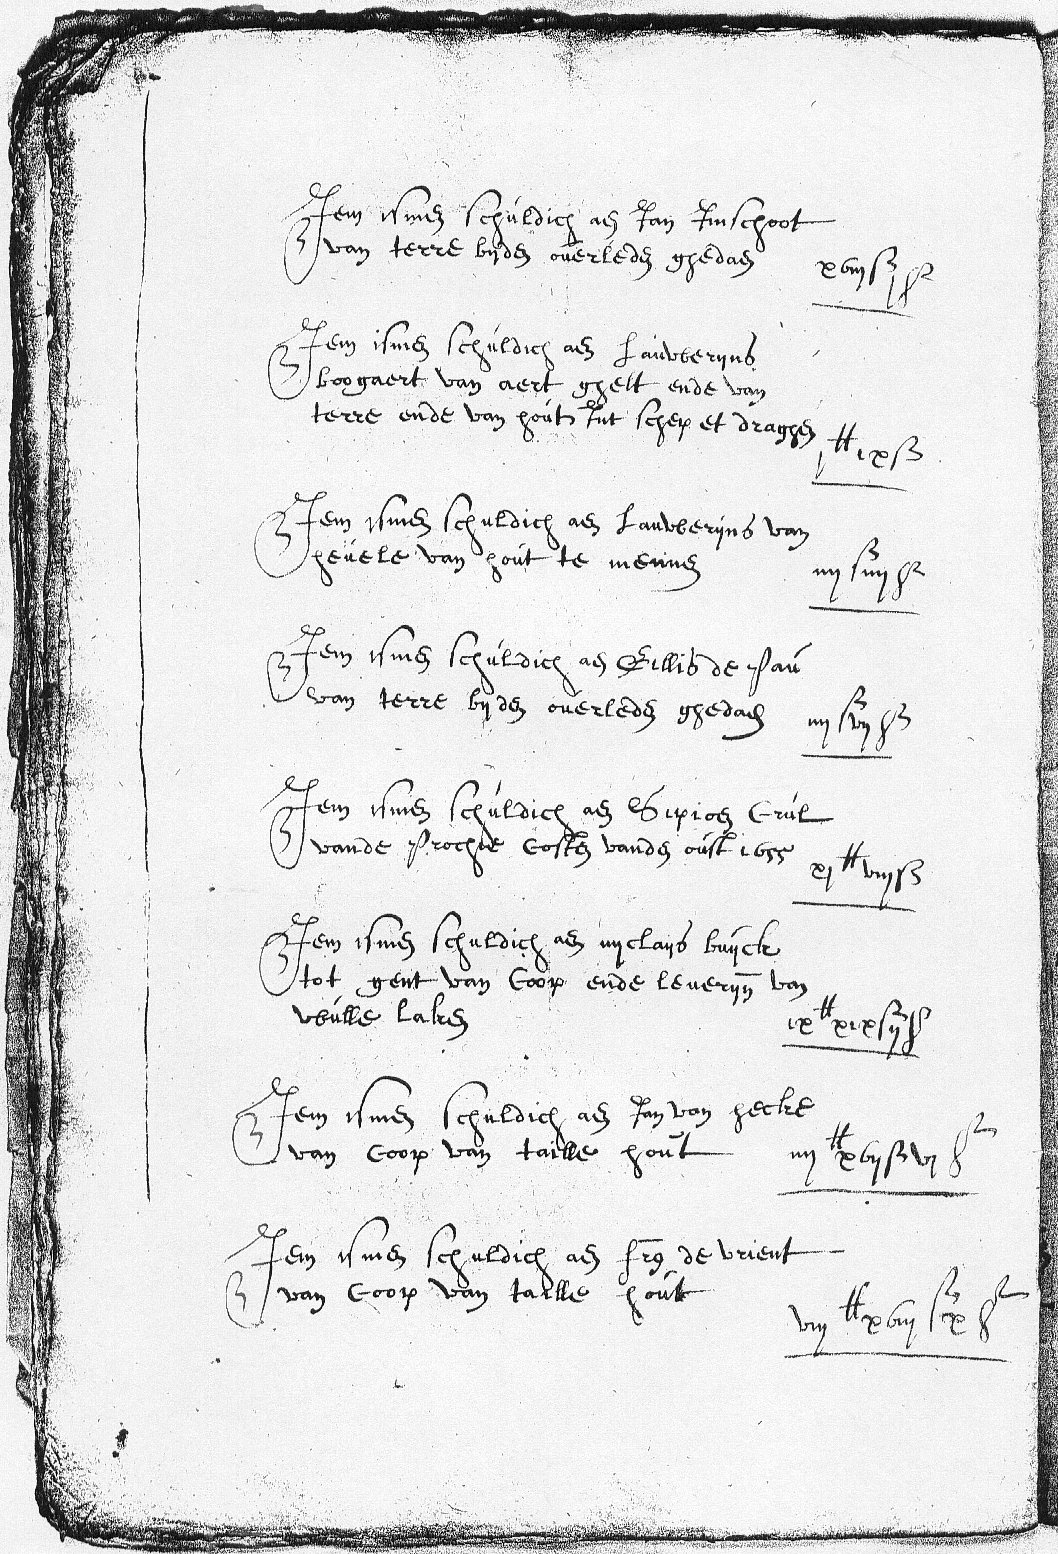 Item ismen schuldich aen Jan Imschoot
van terre bijden overleden ghedaen
xviij s j g
Item ismen schuldich aen Lauwerijns
boogaert van aert ghelt ende van
terre ende van hout Int schep et draghen
j lb ix s
Item ismen schuldich aen Lauwerijns van
heule van hout te mennen
iiij s iiij g
Item ismen schuldich aen Gillis de Pau
van terre bijden overleden ghedaen
iij s vij g
Item ismen schuldich aen Crul
vande Prochie Costen vanden oust 1655
xj lb viij s
Item ismen schuldich aen nyclays buyck
tot gent van Coop ende leveryn van
wulle laken
ix lb xix s ij g
Item ismen schuldich aen Jan van hecke
van Coop van taille hout
iij lb xvij s vj g
Item ismen schuldich aen de vrient
van Coop van taille hout
viij lb xviij s x g